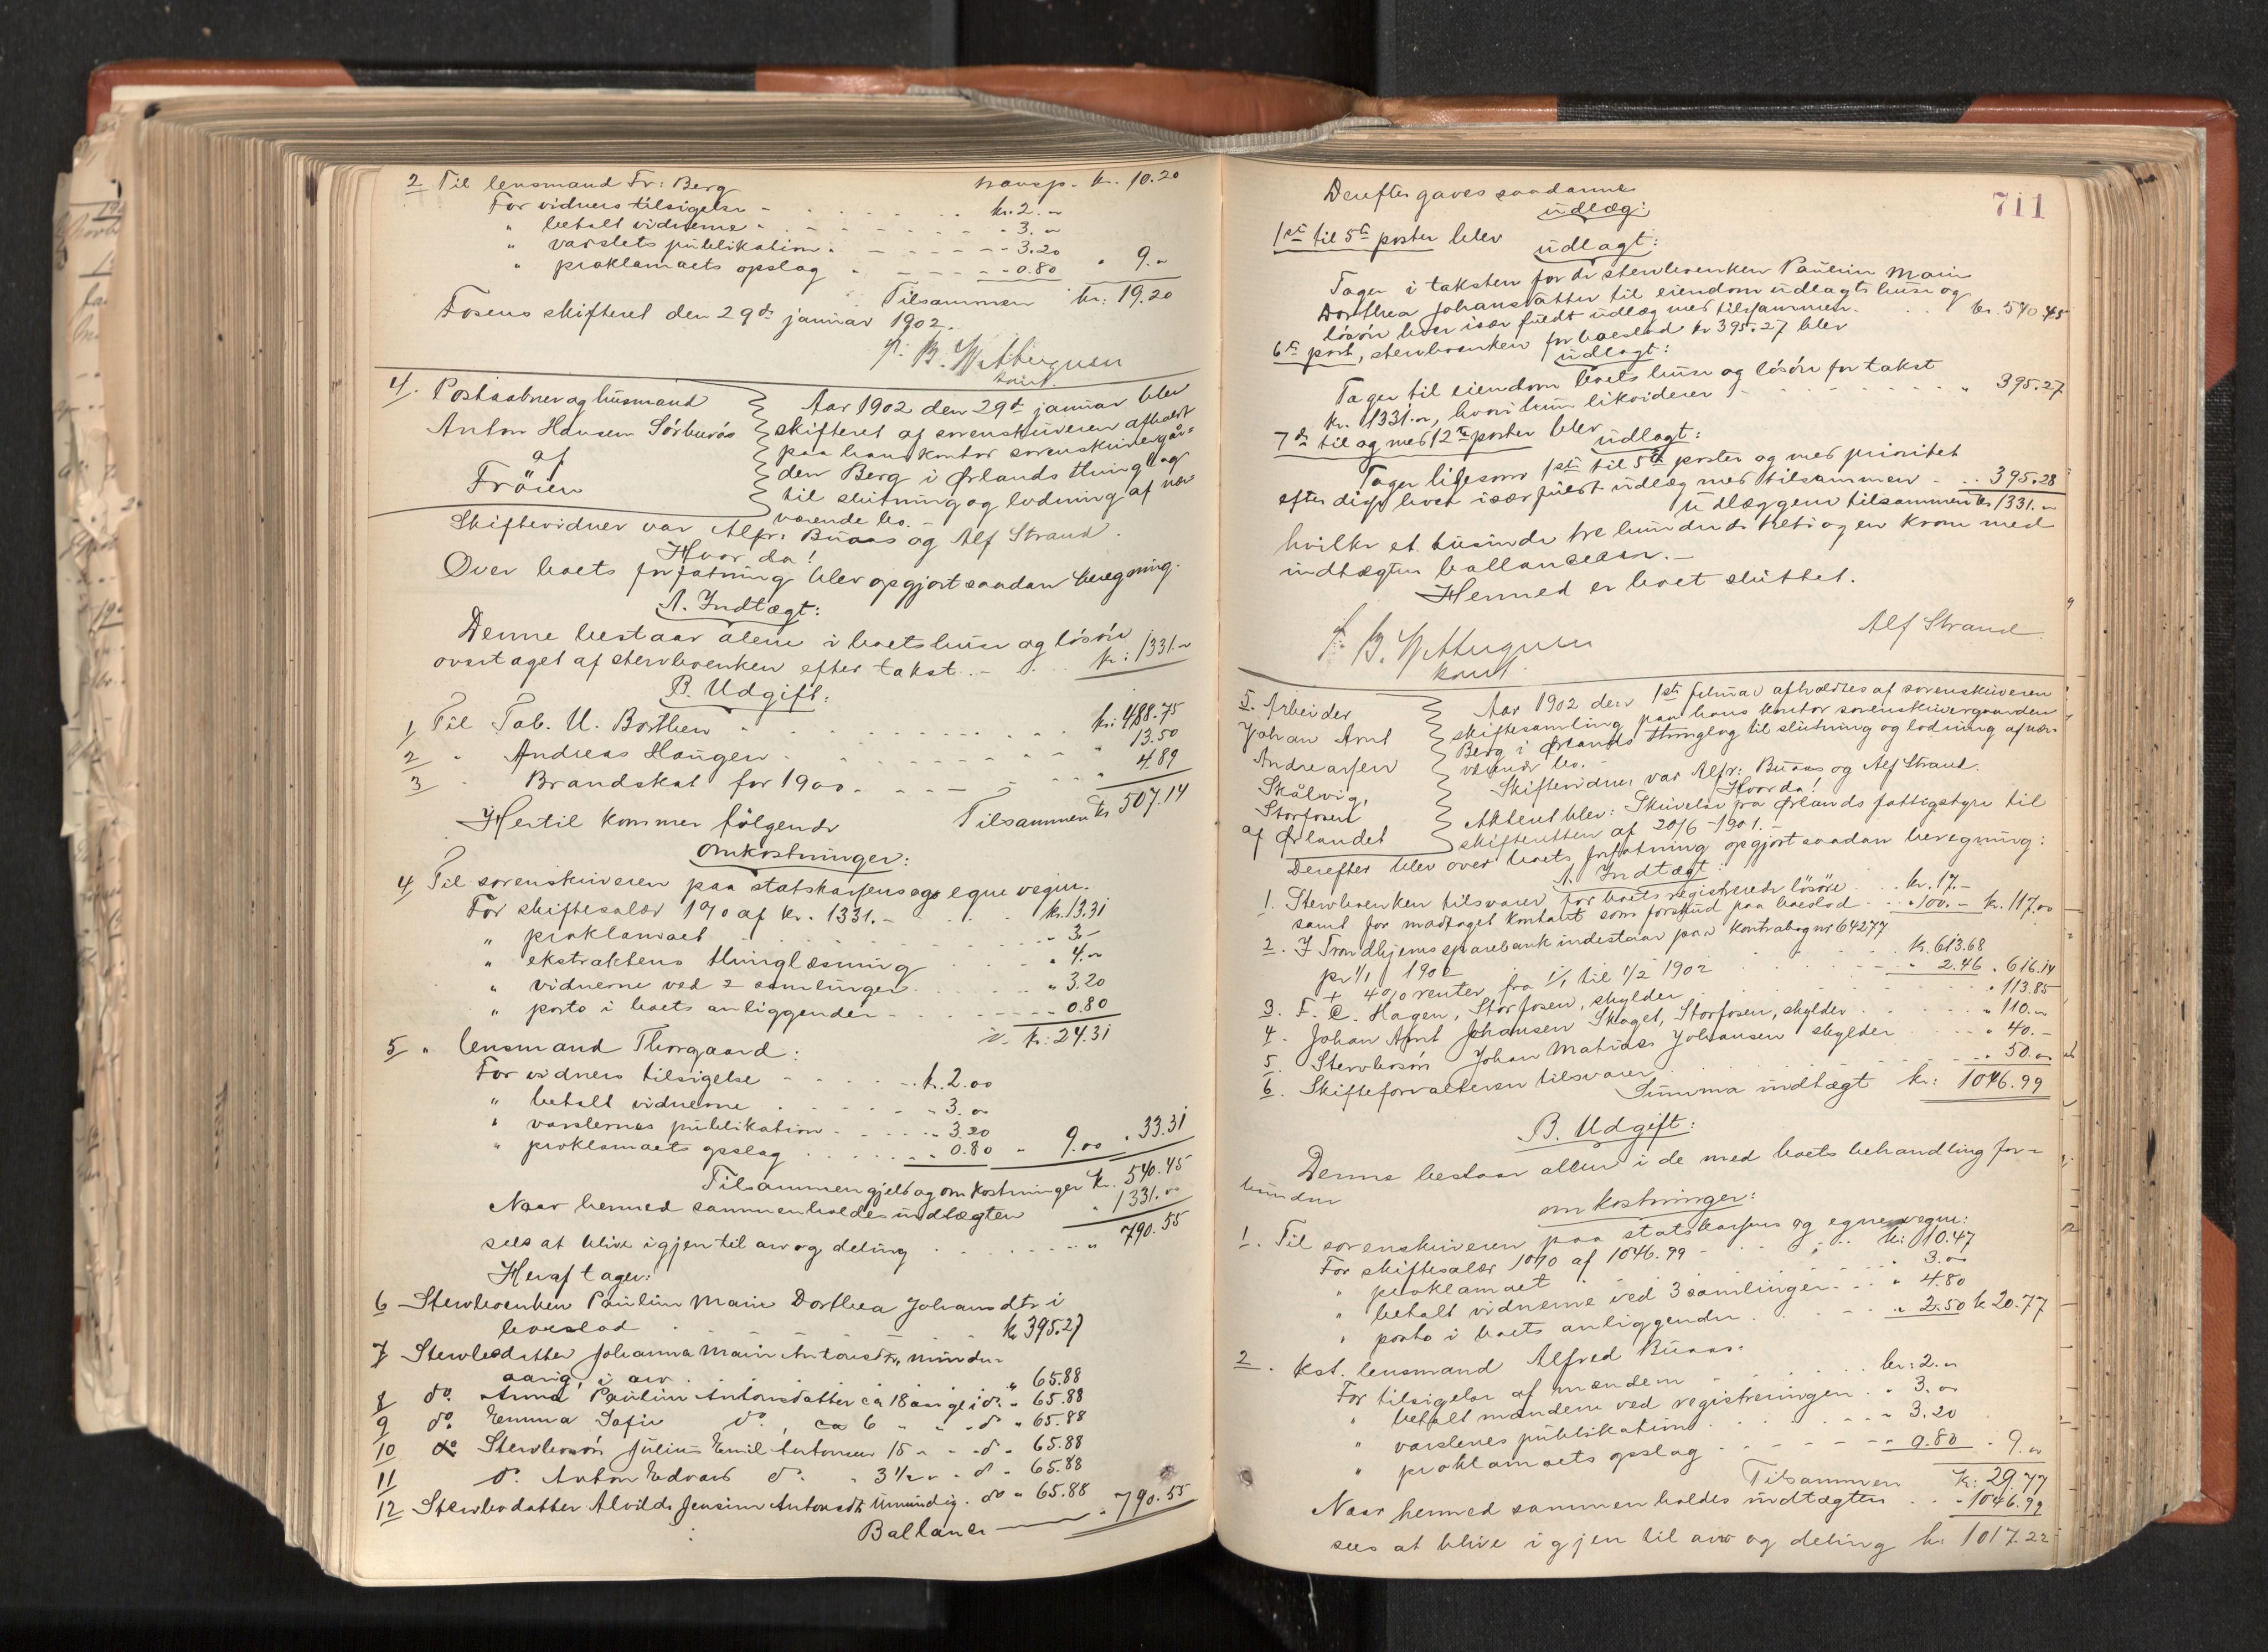 2 Til lensmand Fr: Berg transp. kr. 10.20
For vidners tilsigelse - kr. 2.00
" betalt vidnerne - " 3.00
" varslets publikation - - 3.20
" proklamaets opslag - - 0.80 " 9.00
Tilsammen kr: 19.20
Fosens skifteret den 29de januar 1902.
kst.
4. Postaabner og husmand
Anton Hansen Sörburøs
af
Fröien
Aar 1902 den 29de januar blev
skifteret af sorenskriveren afholdt
paa hans kontor sorenskrivergår=
den Berg i Ørlands thinglag
til slutning og lodning af nær
værende bo. -
Skiftevidner var Alfr: Buaas og Alf Strand.
Hvor da!
Over boets forfatning blev opgjort saadan beregning.
A. Indtægt:
Denne bestaar alene i boets huse og lösöre
overtaget af stervboenken efter takst. - kr: 1331.00
B. Udgift:
1 Til Tob. U. Borthen kr: 488.75
2 " Andreas Haugen " 13.50
3 " Brandskat for 1900. - " 4.89
Tilsammen kr 507.14
Hertil kommer følgende
omkostninger:
4 Til sorenskriveren paa statskassens og egne vegne.
For skiftesalær 1% af kr. 1331.- kr. 13.31
" proklamaet " 3.-
" ekstraktens thinglæsning " 4.00
" vidnerne ved 2 samlinger " 3.20
" porto i boets anliggender - 0.80
kr: 24.31
5 " lensmand Thorgaard:
For vidners tilsigelse - kr. 2.00
" betalt vidnerne " 3.00
" varslernes publikation - " 3.20
" proklamaets opslag " 0.80 " 9.00 " 33.31
Tilsammen gjeld og omkostninger kr. 540.45
Naar hermed sammenholdes indtægten " 1331.00
sees at blive igjen til arv og deling " 790.55
Heraf tager:
6 Stervboenken Pauline Marie Dorthea Johansdtr i
boeslod kr 395.27
7 Stervbodatter Johanna Marie Antonsdtr, myndu-
aarig, i arv " 65.88
8 do. Anna Pauline Antonsdatter ca 18 aar gl i do. " 65.88
9 do. Emma Sofie do., ca 6 " " - do " 65.88
10 do Stervbosön Julius Emil Antonsen 15 " " - do " 65.88
11 do. Anton Edvard do. " 3 1/2 " " - do " 65.88
12 Stervbodatter Alvilde Jensine Antonsdtr umyndig. do " 65.88 " 790.55
Ballance
711
Derefter gaves saadanne
udlæg:
1ste til 5te poster blev
udlagt:
Tager i taksten for de stervboenken Pauline Marie
Dorthea Johansdatter til eiendom udlagte huse og
lösöre hver især fuldt udlæg med tilsammen. kr. 540.45
6te post, stervboenken for boeslod kr 395.27 blev
udlagt:
Tager til eiendom boets huse og lösöre for takst
kr. 1331.00, hvori hun likviderer " 395.27
7de til og med 12te poster blev
udlagt:
Tager ligesom 1ste til 5te poster og med prioritet
efter disse hver især fuldt udlæg med tilsammen - " 395.28
Udlæggene tilsammen kr 1331.00
hvilke et tusinde tre hundrede treti og en krone med
indtægten ballancerer. -
Hermed er boet sluttet.
kst.
Alf Strand
5. Arbeider
Johan Arnt
Andreassen
Skålvig,
Storfosen
af Ørlandet
Aar 1902 den 1ste februar afholdtes af sorenskriveren
skiftesamling paa hans kontor sorenskrivergaarden
Berg i Ørlands thinglag til slutning og lodning af nær-
værende bo. -
Skiftevidner var Alfr: Buaas og Alf Strand.
Hvor da!
Akteret blev: Skrivelse fra Ørlands fattigstyre til
skifteretten af 20/6 - 1901. -
Derefter blev over boets forfatning opgjort saadan beregning:
A. Indtægt:
1. Stervboenken tilsvarer for boets registrerede lösöre kr. 17.-
samt for modtaget kontant som forskud paa boeslod " 100.- kr. 117.00
2. I Trondhjems sparebank indestaar paa kontrabog nr 64277
pr 1/1 1902 kr. 613.68
+ 4% renter fra 1/1 til 1/2 1902 " 2.46 " 616.14
3. F. C. Hagen, Storfosen, skylder " 113.85
4. Johan Arnt Johansen Skaget, Storfosen, skylder " 110.00
5. Stervbosön Johan Matias Johansen skylder " 40.-
6. Skifteforvalteren tilsvarer " 50.00
Summa indtægt kr: 1046.99
B. Udgift:
Denne bestaar allene i de med boets behandling for=
bundne
omkostninger:
1. Til sorenskriveren paa statskassens og egne vegne:
For skiftesalær 1% af 1046.99 - kr: 10.47
" proklamaet " 3.00
" betalt vidnerne ved 3 samlinger " 4.80
" porto i boets anliggender " 2.50 kr 20.77
2. kst. lensmand Alfred Buaas:
For tilsigelse af mændene kr: 2.00
" betalt mændene ved registreringen " 3.00
" varslenes publikation " 3.20
" proklamaets opslag " 0.80 " 9.00
Tilsammen kr: 29.77
Naar hermed sammenholdes indtægten " 1046.99
sees at blive igjen til arv og deling kr. 1017.22